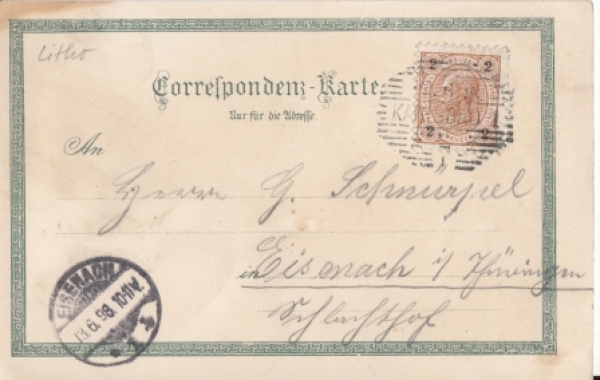 Litho
Correspondenz-Karte
Nur für die Adresse.
2 2
2 2
KA
1
An
Herrn G. Schnürpel
in Eisenach i/ Thüringen
Schlachthof
EISENACH
13.6.98. 10-11V.
* 1 *